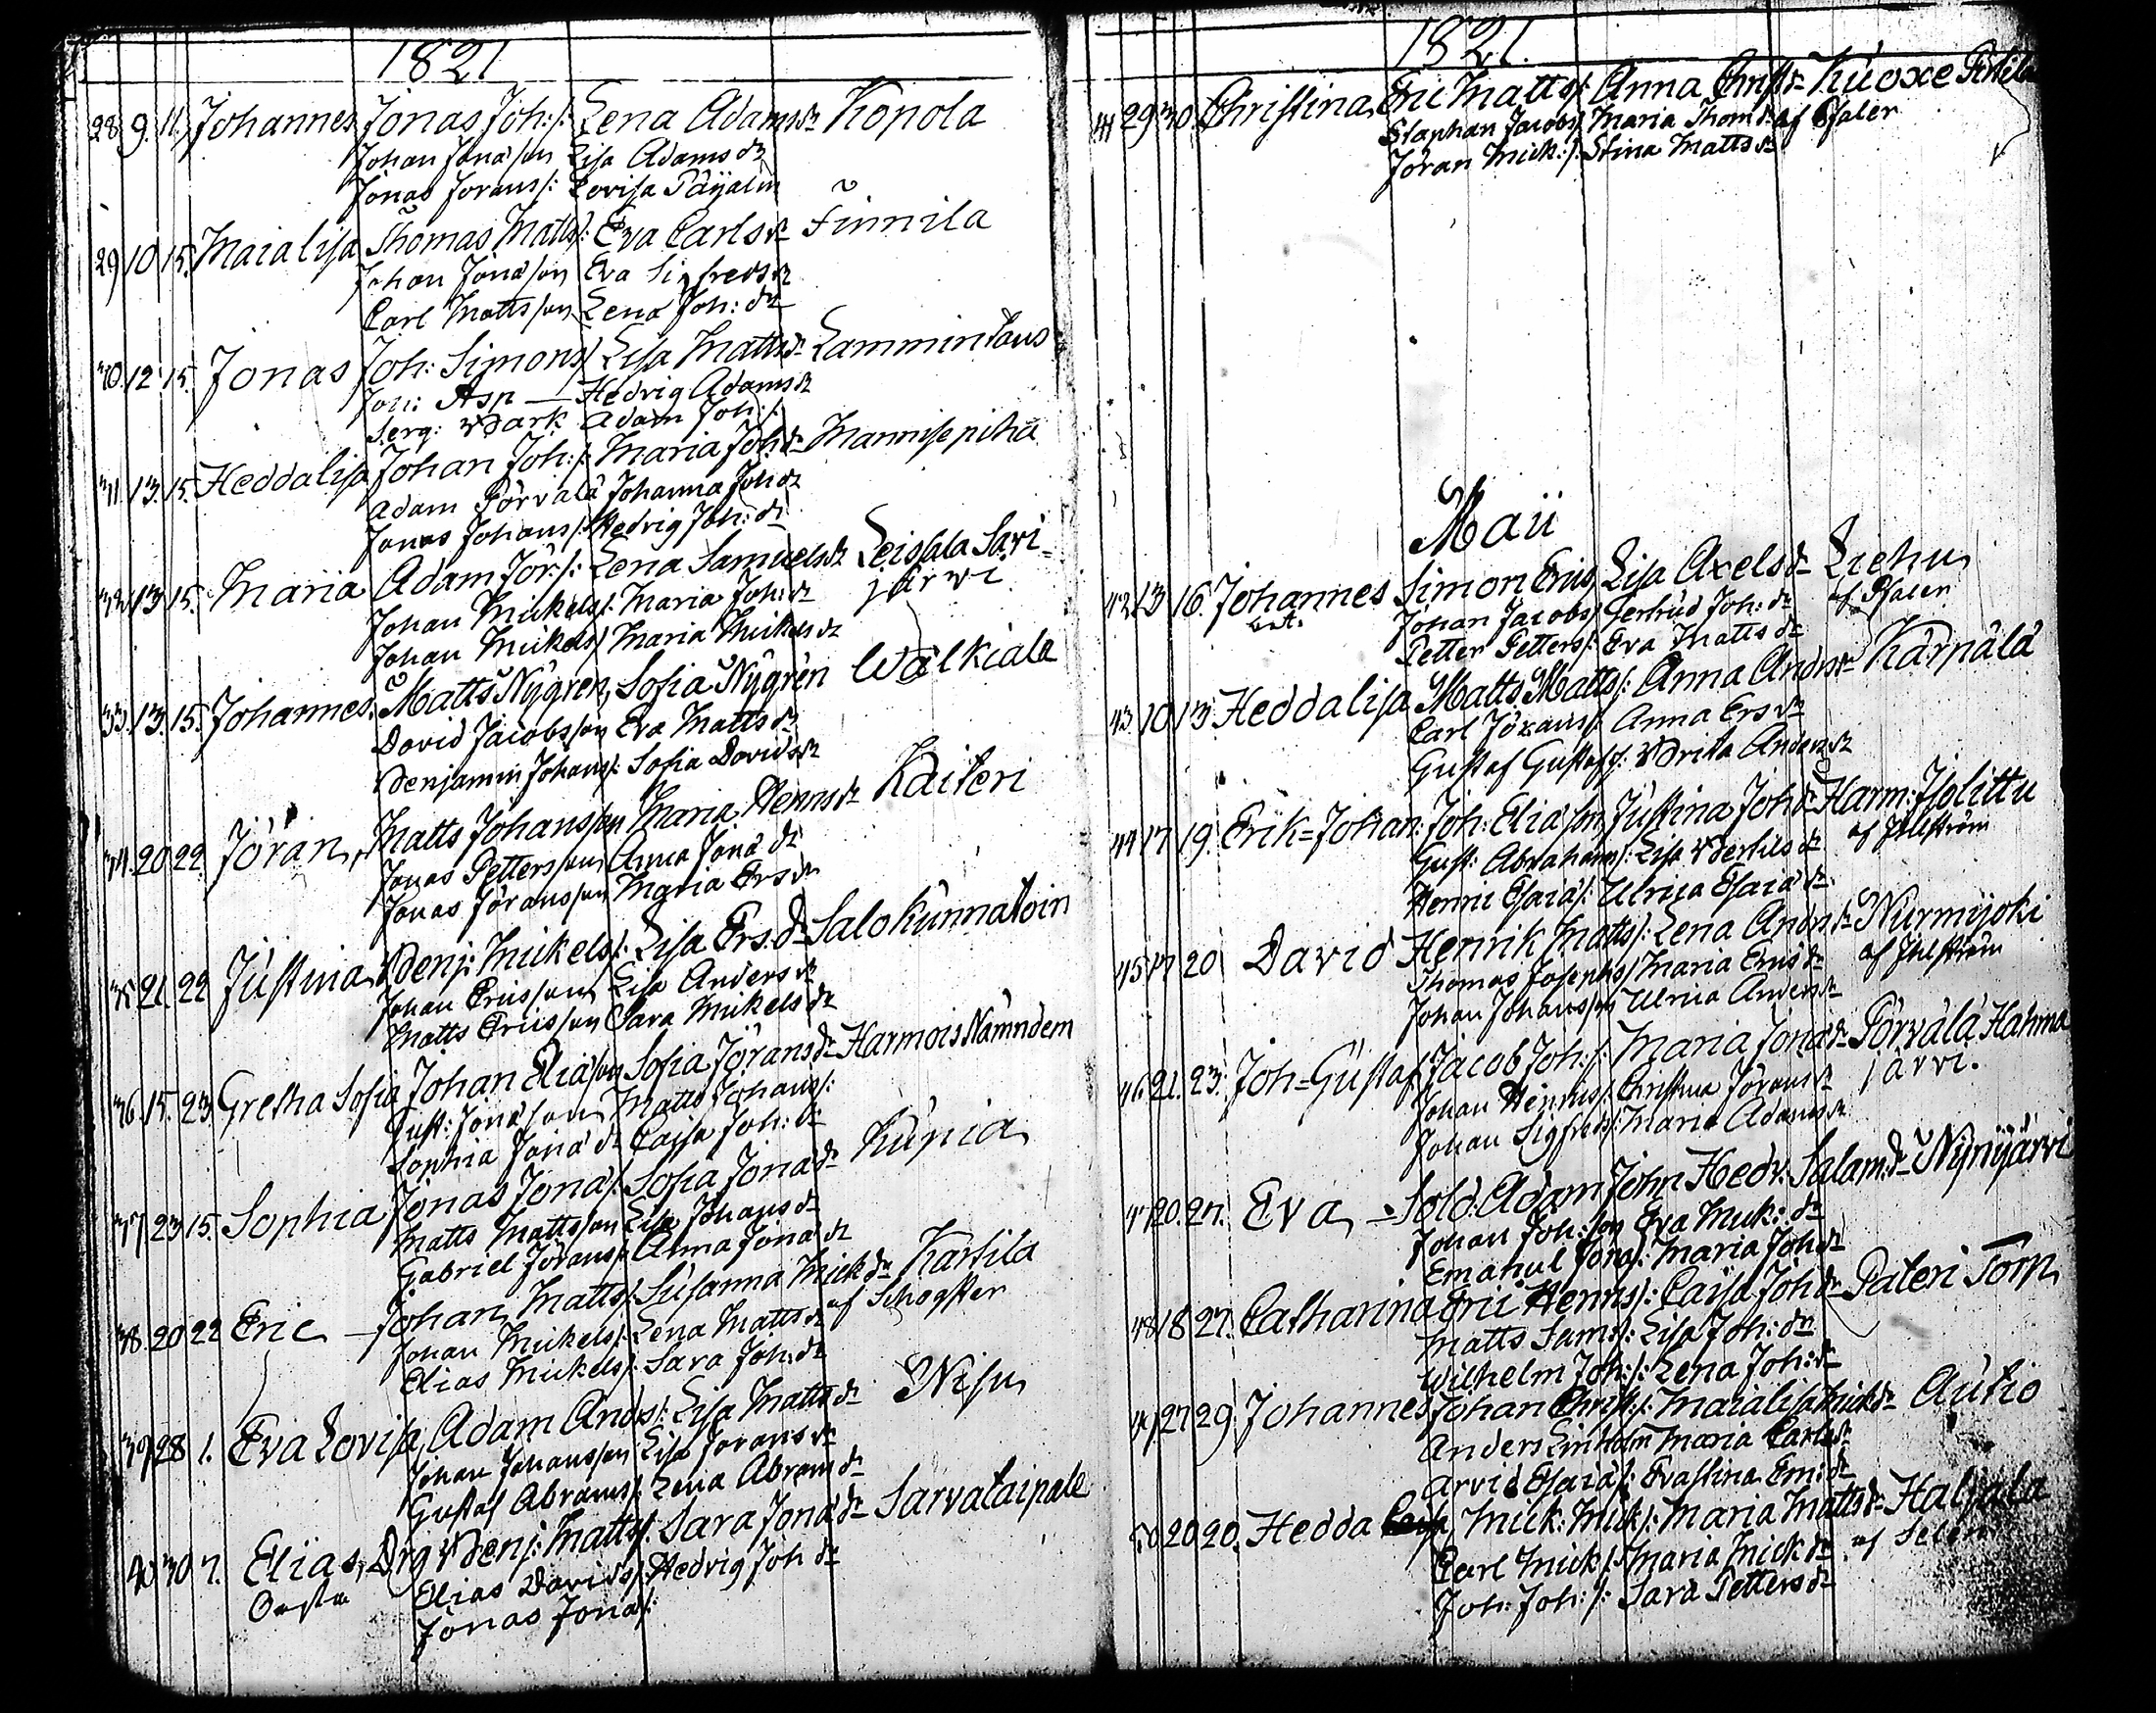 1821
28. 9. 11. Johannes Jonas Joh:s/: Lena Adamsdr Kopola
Johan Jonasson Lisa Adamsdr
Jonas Jörans/: Lovisa Päÿalin
29 10 15. Maialisa Thomas Matts/: Eva Carlsdr Finnila
Johan Jonasson Eva Sigfredsdr
Carl Mattsson Lena Joh:dr
30. 12. 15. Jonas Joh: Simons/ Lisa Mattsdr Lammintaus
Joh: Asp — Hedvig Adamsdr
Serg: Bark Adam Joh:/:
31. 13. 15. Heddalisa Johan Joh:/: Maria Johdr Mannisepihä
Adam Pörvälä Johanna Johdr
Jonas Johans/: Hedvig Joh:dr
32. 13. 15. Maria Adam Jör:/: Lena Samuelsdr Seistala Savi=
Johan Mickels/: Maria Joh:dr järvi
Johan Mickels/ Maria Mickelsdr
33. 13. 15. Johannes Matts Nÿgren, Sofia Nÿgrén Wälkiala
David Jacobsson Eva Mattsdr
Benjamin Johans/: Sofia Davidsdr
34. 20 22. Jöran, Matts Johansson Maria Henrsdr Kaiteri
Jonas Pettersson Anna Jonadr
Jonas Jöransson Maria Ersdr
35 21. 22 Justina Benj: Mickels/: Lisa Ers.dr Salokunnatoin
Johan Ericsson Lisa Andersdr
Matts Ericsson Cara Mickelsdr
36. 15. 23 Gretha Sofia Johan Eliasson Sofia Jöransdr Harmois Nämndem
Gust: Jonasson Matts Johans/:
Sophia Jonadr Caisa Joh:dr
37 23 15. Sophia Jonas Jona/: Sofia Jonadr Kunia
Matts Mattsson Lisa Johansdr
Gabriel Jörans/: Anna Jonadr
38. 20 22 Eric — Johan Matts/: Susanna Mickdr Kärkilä
Johan Mickels/: Lena Mattsdr af Schogster
Elias Mickels/: Sara Joh:dr
39 28 1. Eva Lovisa, Adam Ands/: Lisa Mattsdr Nisu
Johan Johansson Lisa Joransdr
Gustaf Abrams/: Lena Abramdr
40 30 7. Elias, Drg Benj: Matts/: Sara Jonadr Sarvataipale
Elias Davids/ Hedvig Johdr
Jonas Jona/:
1821.
41 29 30. Christina Eric Matts/: Anna Christdr Kuoxe
Staphan Jacobs/ Maria Thomdr af Psaler
Jöran Mick:/: Stina Mattsdr
Maii
42. 13 16. Johannes Simon Erics/ Lisa Axelsdr Liehu
Johan Jacobs/ Gertrud Joh:dr af Psaler
Petter Petters/: Eva Mattsdr
43 10 13 Heddalisa Matts Matts/: Anna Andrsdr Kärpälä
Carl Jörans/: Anna Ersdr
Gustaf Gustafs/: Brita Andersdr
44 17 19. Erik=Johan: Joh: Eliasson Justina Johdr Harm: Isolittu
Gust: Abrahams/: Lisa Bertilsdr af Ihlström
Henric Esaia/: Ulrica Esaiadr
45 17 20 David Henrik Matts/: Lena Andrsdr Nurmijoki
Thomas Josephs/ Maria Ericsdr af Ihlström
Johan Johansson Ulrica Andersdr
46 21. 23. Joh=Gustaf Jacob Joh:/: Maria Jonadr Pörvälä Hahma
Johan Henrics/ Christina Jöransdr järvi.
Johan Sigfreds/: Maria Adamsdr
47 20. 27. Eva — Sold: Adam John Hedv: Salam:dr Nÿnÿärvi
Johan Joh:son Eva Mick:dr
Emanuel Jona/: Maria Johdr
48 18 27. Catharina Eric Henrs/: Caisa Johdr Pateri Torp
Matts Sams/: Lisa Joh:dr
Wilhelm Joh:/: Lena Joh:dr
49 27 29. Johannes Johan Christ:/: Maialisa Mickdr Autio
Anders Lindholm Maria Carlsdr
Arvid Esaia/: Evastina Em:dr
50 20 20. Hedda Mick: Mick/: Maria Mattsdr Haljala
Carl Mick/: Maria Mickdr af
Joh: Joh:/: Sara Pettersdr